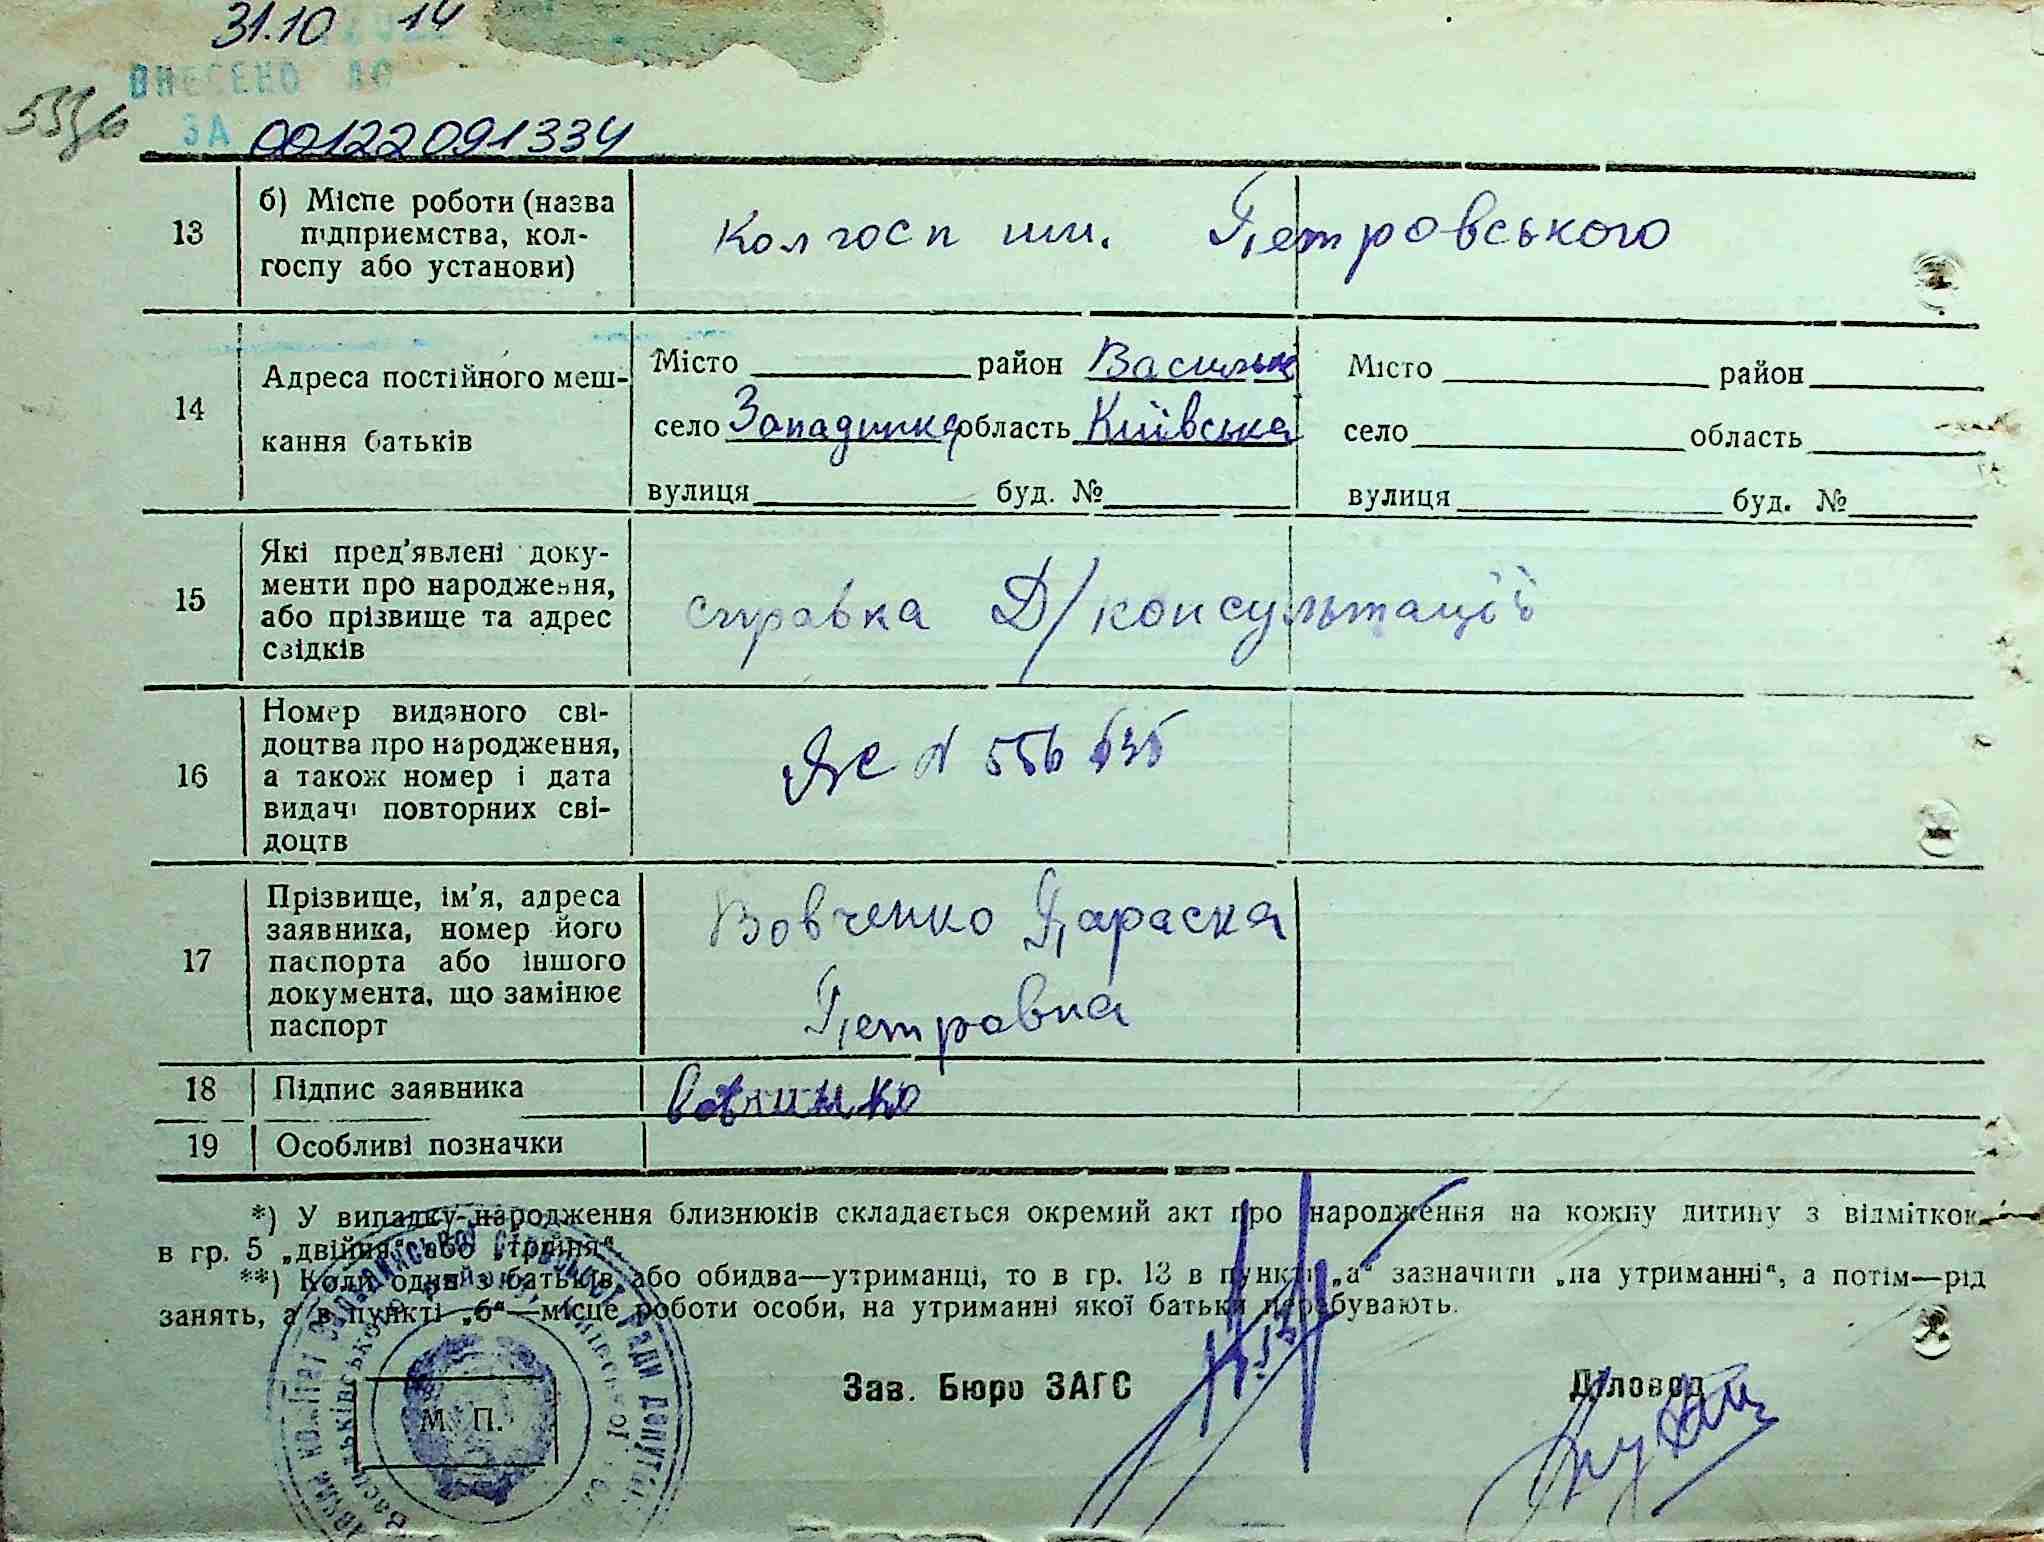 31.10 14
ВНЕСЕНО ДО
ЗА 00122091334
13
б) Місце роботи (назва
підприємства, кол-
госпу або установи)
Колгосп им. Петровського
14
Адреса постійного меш-
кання батьків
Місто район Васильк
село Западинка область Київська
вулиця буд. №
Місто район
село область
вулиця буд. №
15
Які пред'явлені доку-
менти про народження,
або прізвище та адрес
свідків
справка Д/консультації
16
Номер виданого сві-
доцтва про народження,
а також номер і дата
видачі повторних сві-
доцтв
ЯС N 556
17
Прізвище, ім'я, адреса
заявника, номер його
паспорта або іншого
документа, що замінює
паспорт
Вовченко Параска
Петровна
18 Підпис заявника
19 Особливі позначки
*) У випадку народження близнюків складається окремий акт про народження на кожну дитину з відміткою
в гр. 5 „двійня“ або „трійня“.
**) Коли один з батьків або обидва—утриманці, то в гр. 13 в пункті „а“ зазначити „на утриманні“, а потім—рід
занять, а в пункті „б“—місце роботи особи, на утриманні якої батьки перебувають.
Зав. Бюро ЗАГС
Діловод
М. П.